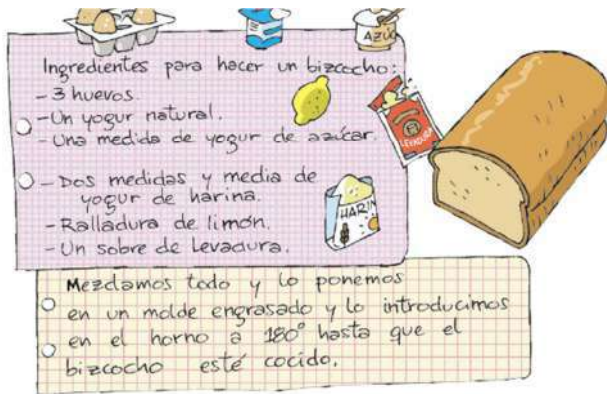 AZÚC
Ingredientes para hacer un bizcocho:
- 3 huevos.
- Un yogur natural.
- Una medida de yogur de azúcar.
LEVADURA
- Dos medidas y media de
yogur de harina.
HARIN
- Ralladura de limón.
- Un sobre de Levadura.
Mezclamos todo y lo ponemos
en un molde engrasado y lo introducimos
en el horno a 180° hasta que el
bizcocho esté cocido.